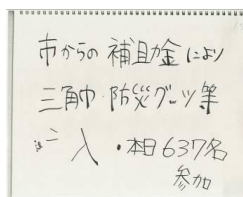 市からの 補助金により
三角巾 防災グッツ等
入 ・本日637名
参加